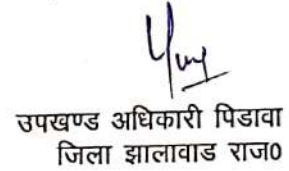 उपखण्ड अधिकारी पिडावा
जिला झालावाड राज0